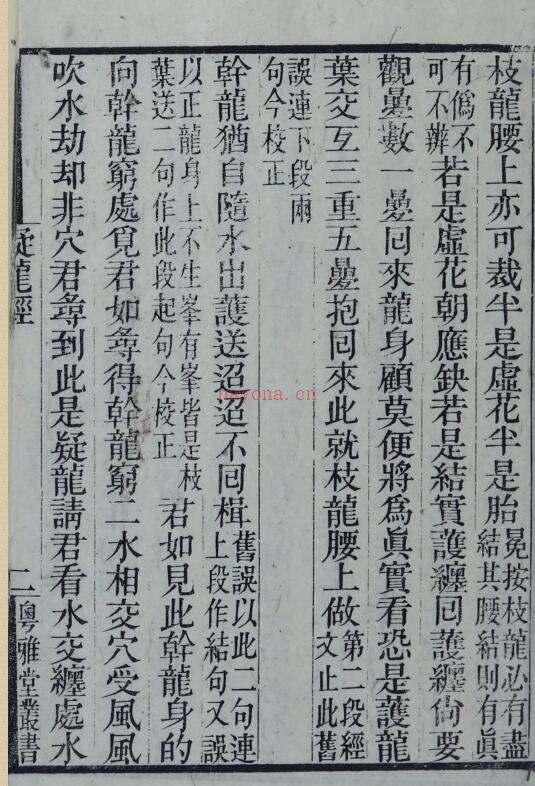 枝龍腰上亦可裁半是虛花半是胎冕按枝龍必有盡結其腰結則有眞
有僞不可不辨若是虛花朝應缺若是結實護纏回護纏尙要
觀疊數一疊回來龍身顧莫便將爲眞實看恐是護龍
葉交互三重五疊抱回來此就枝龍腰上做第二段經文止此舊
誤連下段兩句今校正
幹龍猶自隨水出護送迢迢不回楫舊誤以此二句連上段作結句又誤
以正龍身上不生峯有峯皆是枝葉送二句作此段起句今校正君如見此幹龍身的
向幹龍窮處覓君如尋得幹龍窮二水相交穴受風風
吹水劫却非穴君尋到此是疑龍請君看水交纏處水
疑龍經
二
粵雅堂叢書
nayona.cn